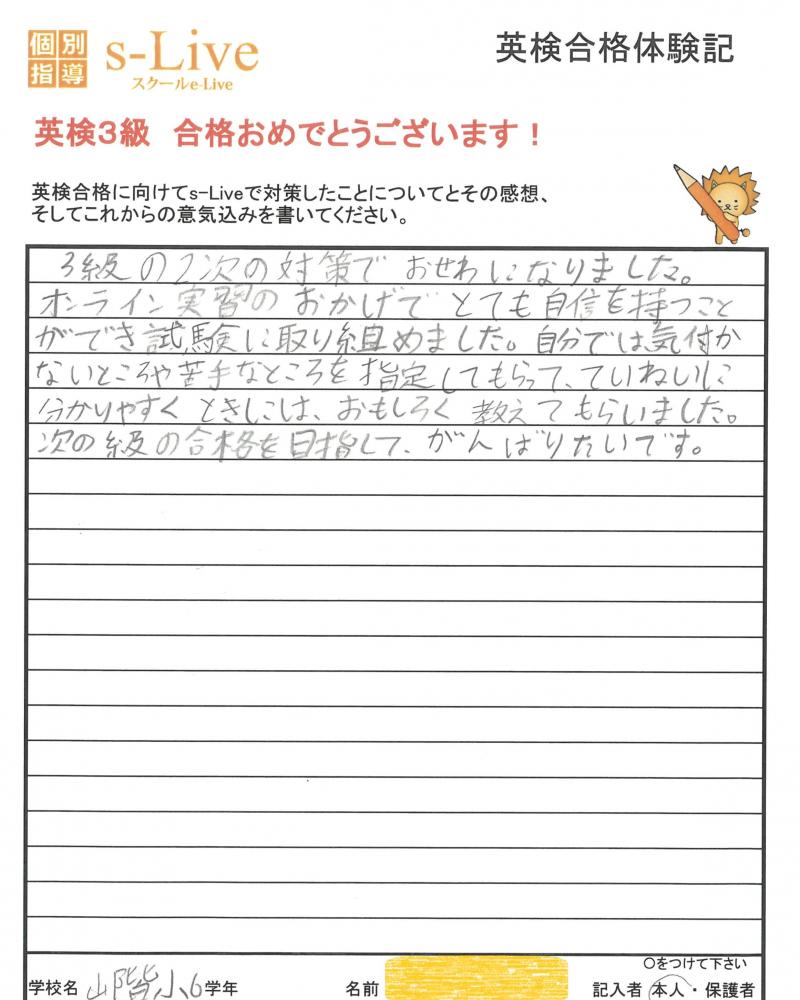 個別指導 s-Live
スクールe-Live
英検合格体験記
英検3級 合格おめでとうございます！
英検合格に向けてs-Liveで対策したことについてとその感想、
そしてこれからの意気込みを書いてください。
3級の2次の対策で おせわになりました。
オンライン実習の おかげで とても自信を持つこと
ができ試験に取り組めました。自分では気付か
ないところや苦手なところを指定してもらって、ていねいに
分かりやすく ときにには、おもしろく 教えてもらいました。
次の級の合格を目指して、がんばりたいです。
〇をつけて下さい
学校名 山階小6学年 名前 記入者 本人・保護者